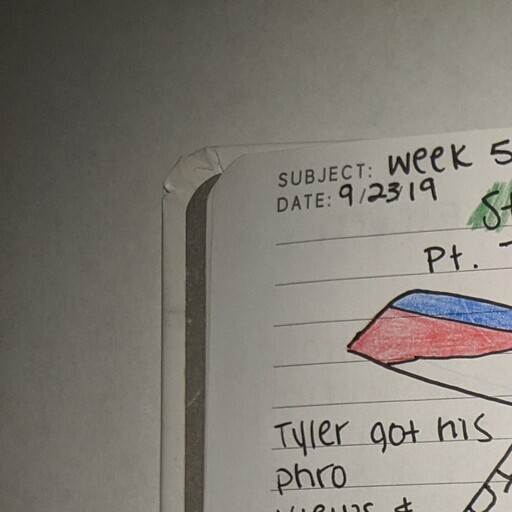 SUBJECT: Week 5
DATE: 9/23/19
Pt.
Tyler got his
phro
views &